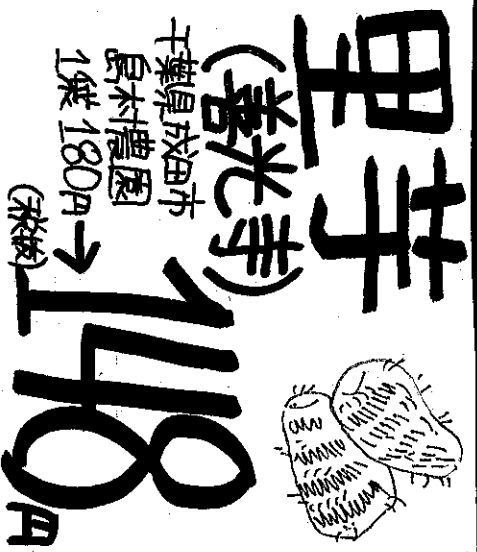 里芋
(善光寺)
千葉県成田市
島村農園
1袋180円
→
(税抜)
148円